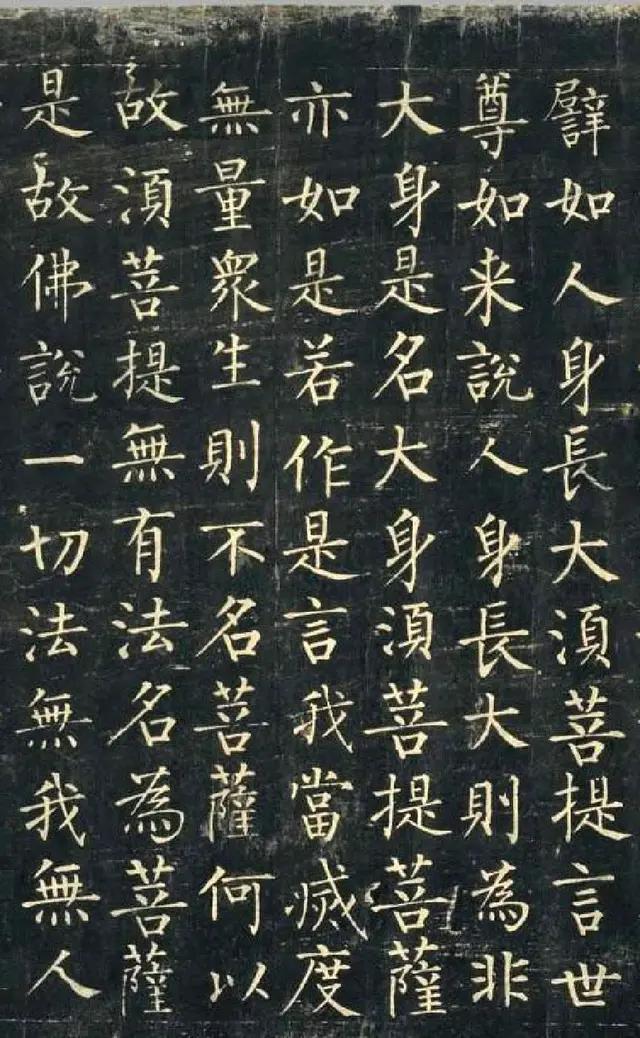 譬如人身長大湏菩提言世
尊如来說人身長大則為非
大身是名大身湏菩提菩薩
亦如是若作是言我當滅度
無量衆生則不名菩薩何以
故湏菩提無有法名為菩薩
是故佛說一切法無我無人